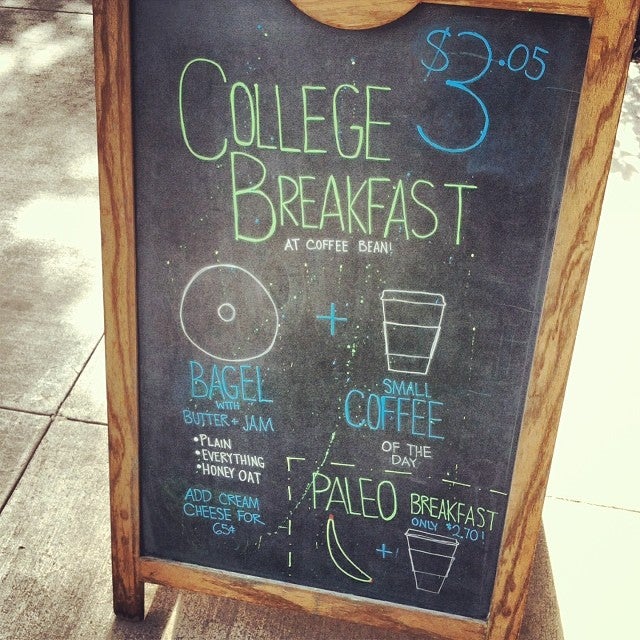 $3.05
COLLEGE
BREAKFAST
AT COFFEE BEAN!
+
BAGEL
WITH
BUTTER + JAM
•PLAIN
•EVERYTHING
•HONEY OAT
ADD CREAM
CHEESE FOR
65¢
SMALL
COFFEE
OF THE
DAY
PALEO BREAKFAST
ONLY $2.70!
+